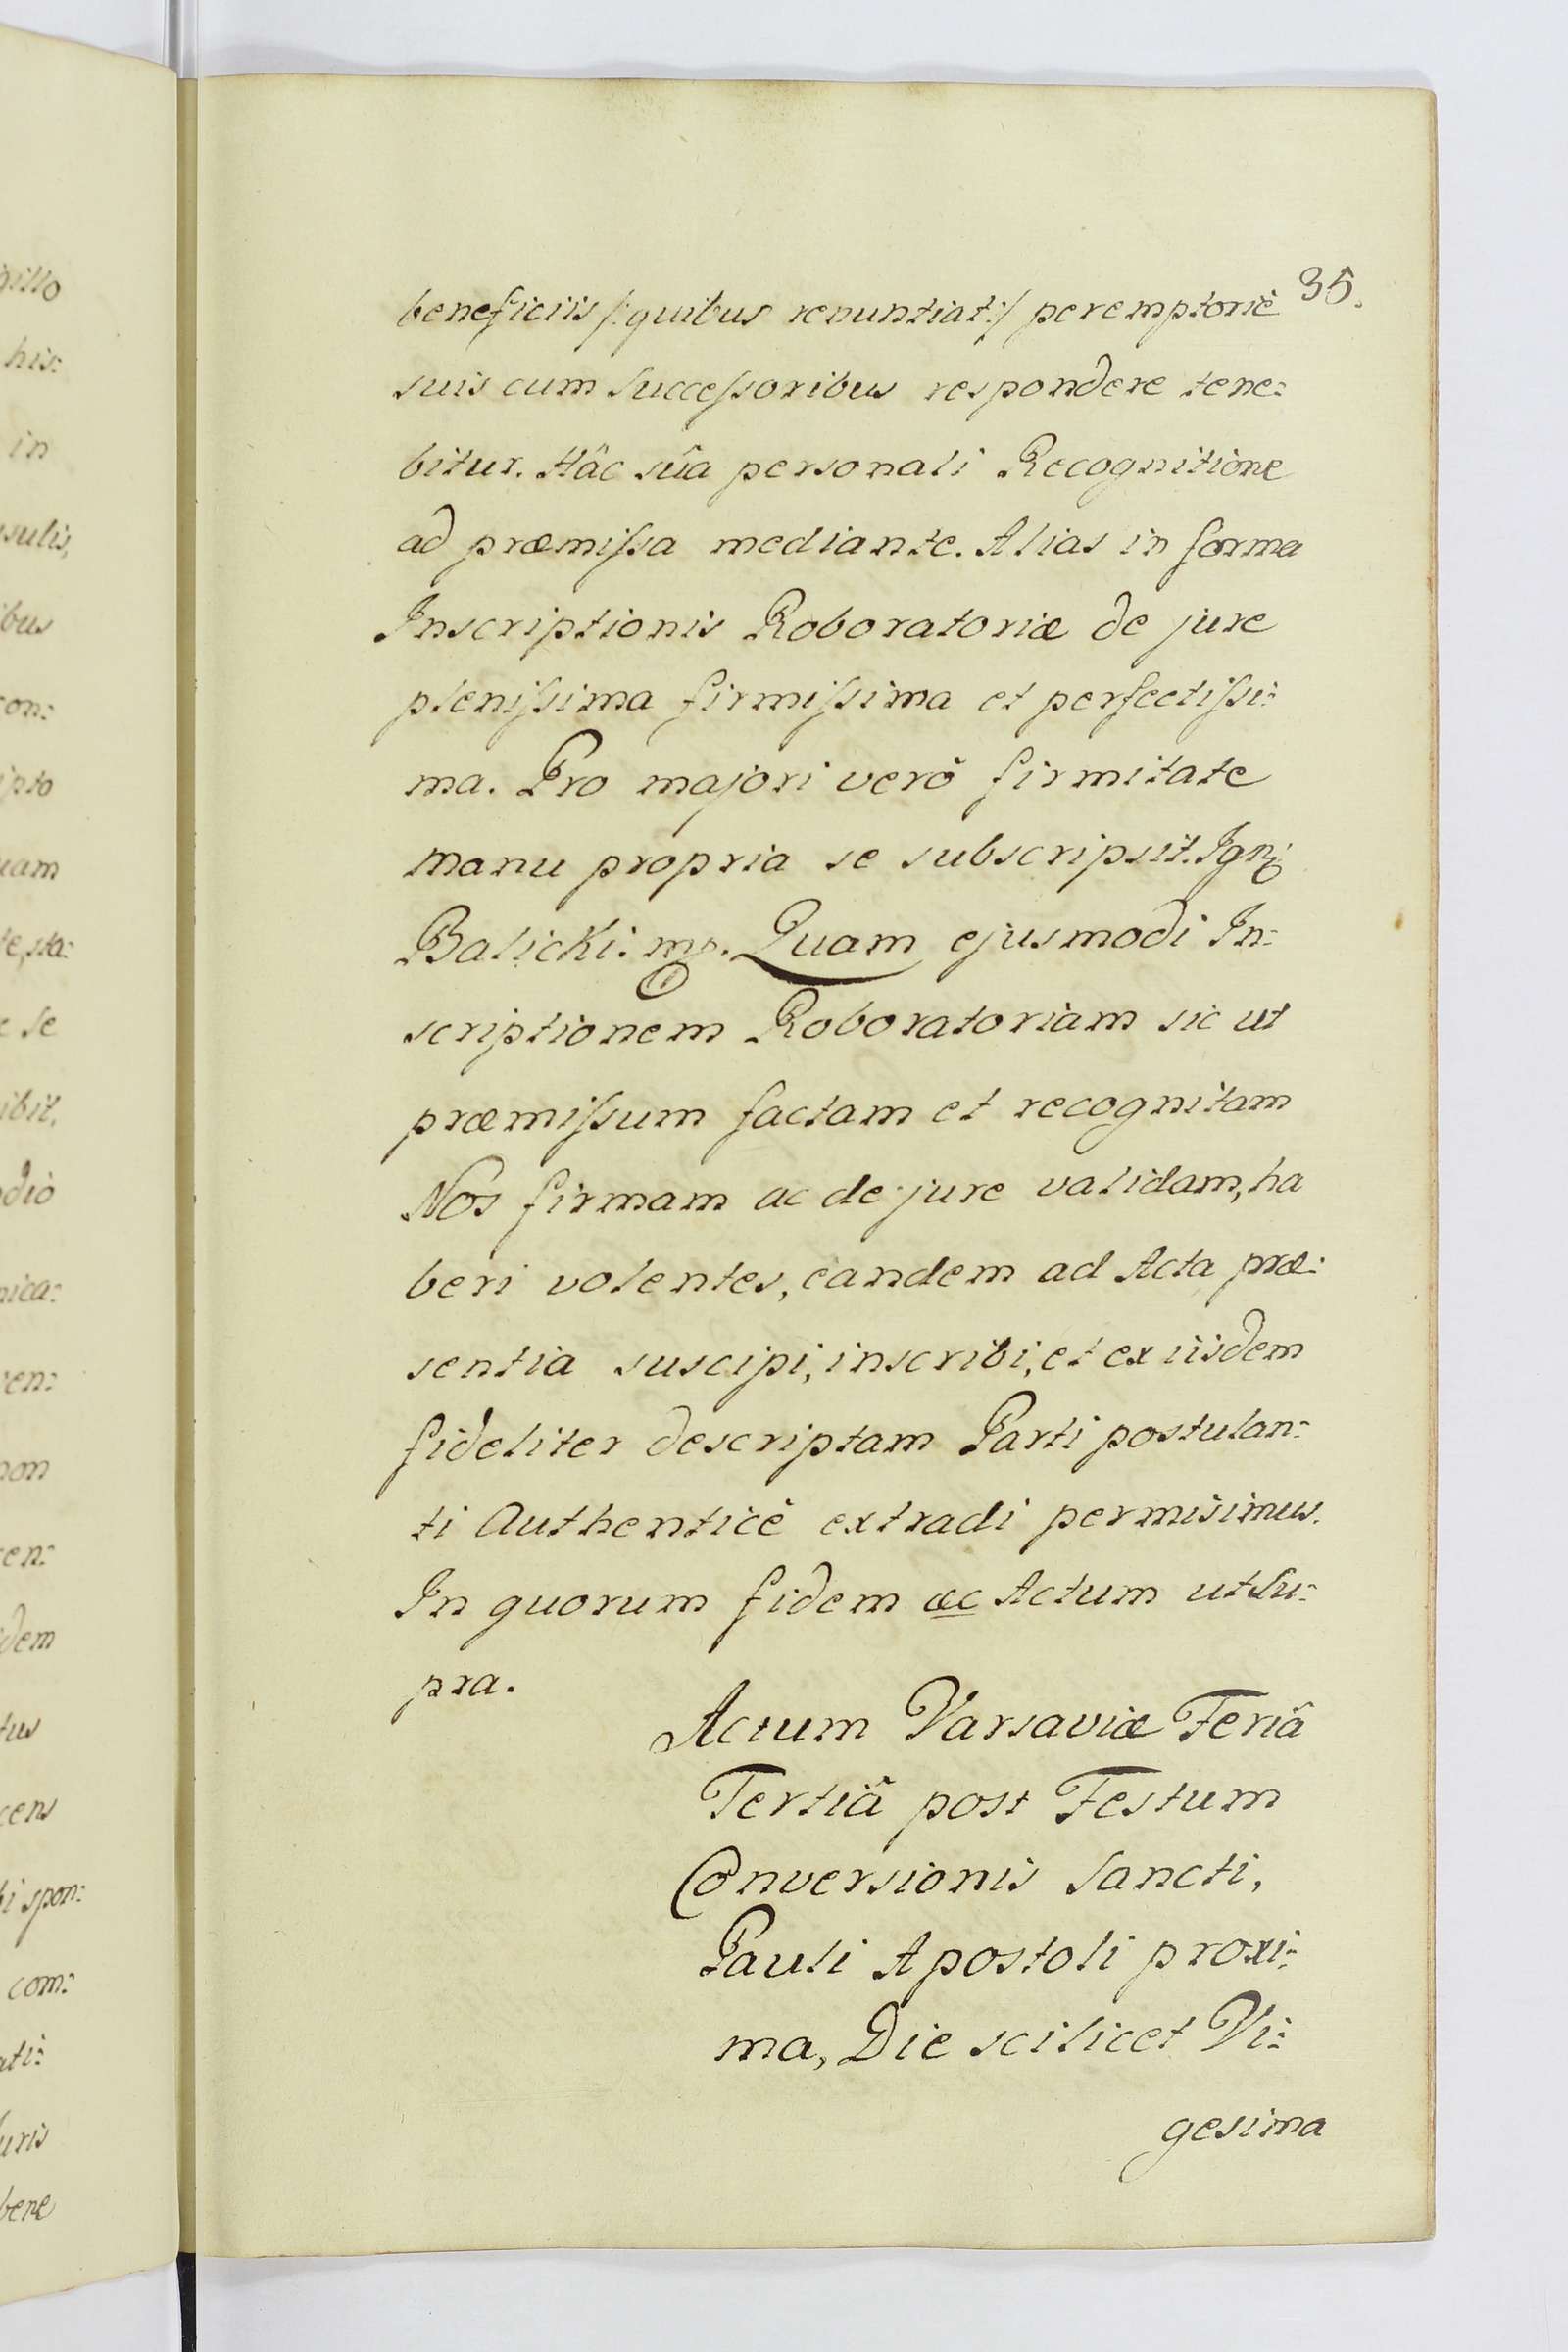 35.
beneficiis /: quibus renuntiat :/ peremptoriè
suis cum Successoribus respondere tene:
bitur. Hâc suâ personali Recognitione
ad præmissa mediante. Alias in forma
Inscriptionis Roboratoriæ de jure
plenissima firmissima et perfectissi:
ma. Pro majori verò firmitate
manu propria se subscripsit. Ign:
Balicki: mp. Quam ejusmodi In:
scriptionem Roboratoriam sic ut
præmissum factam et recognitam
Nos firmam ac de jure validam, ha
beri volentes, eandem ad Acta præ:
sentia suscipi, inscribi, et ex iisdem
fideliter descriptam Parti postulan:
ti Authenticè extradi permisimus.
In quorum fidem ac Actum ut Su:
pra.
Actum Varsaviæ Feriâ
Tertiâ post Festum
Conversionis Sancti,
Pauli Apostoli proxi:
ma, Die scilicet Vi:
gesima